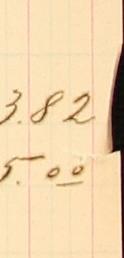 3.82
5.00